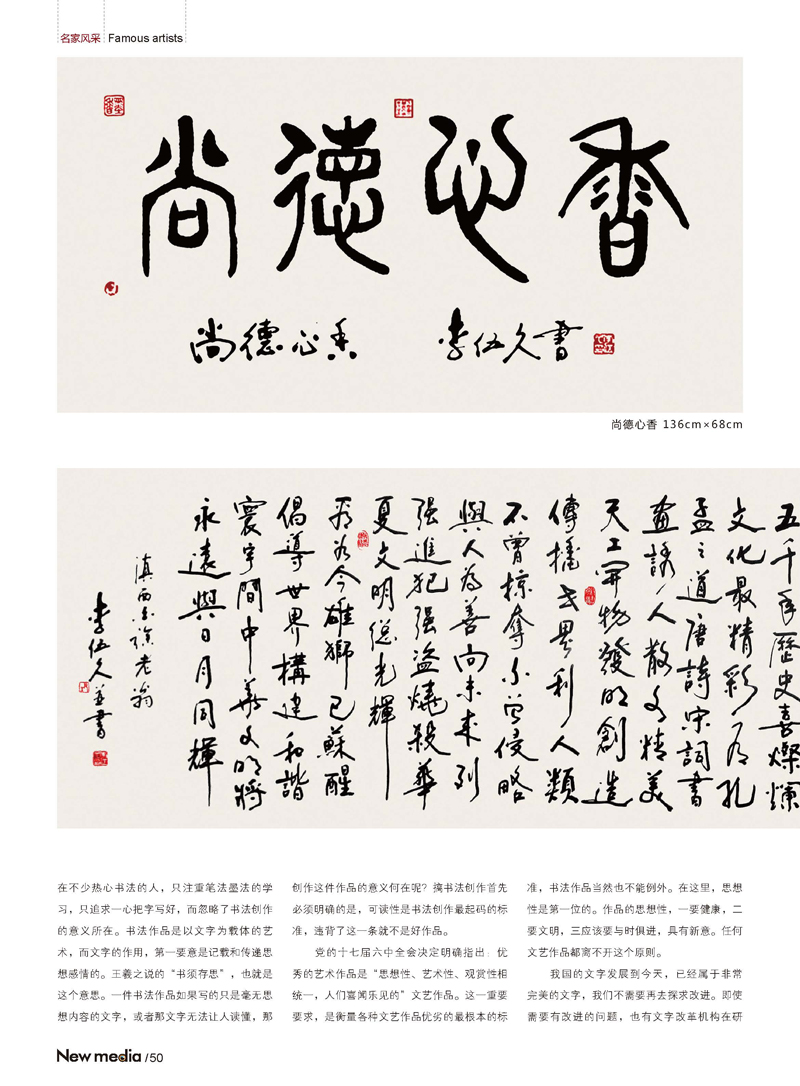 名家风采 Famous artists
尚德心香
尚德心香 李伍久書
尚德心香 136cm×68cm
五千年歷史喜燦爛
文化最精彩有孔
孟之道唐詩宋詞書
畫詠人散文精美
天工開物發明創造
傳播世界利人類
不曾掠奪不曾侵略
與人為善向未來列
强進犯强盗燒殺華
夏文明總光輝
看為今雄獅已蘇醒
倡導世界構建和諧
寰宇間中華文明將
永遠與日月同輝
滇西老翁
李伍久並書
在不少热心书法的人，只注重笔法墨法的学
习，只追求一心把字写好，而忽略了书法创作
的意义所在。书法作品是以文字为载体的艺
术，而文字的作用，第一要意是记载和传递思
想感情的。王羲之说的“书须存思”，也就是
这个意思。一件书法作品如果写的只是毫无思
想内容的文字，或者那文字无法让人读懂，那
创作这件作品的意义何在呢？搞书法创作首先
必须明确的是，可读性是书法创作最起码的标
准，违背了这一条就不是好作品。
党的十七届六中全会决定明确指出：优
秀的艺术作品是“思想性、艺术性、观赏性相
统一，人们喜闻乐见的”文艺作品。这一重要
要求，是衡量各种文艺作品优劣的最根本的标
准，书法作品当然也不能例外。在这里，思想
性是第一位的。作品的思想性，一要健康，二
要文明，三应该要与时俱进，具有新意。任何
文艺作品都离不开这个原则。
我国的文字发展到今天，已经属于非常
完美的文字，我们不需要再去探求改进。即使
需要有改进的问题，也有文字改革机构在研
New media /50